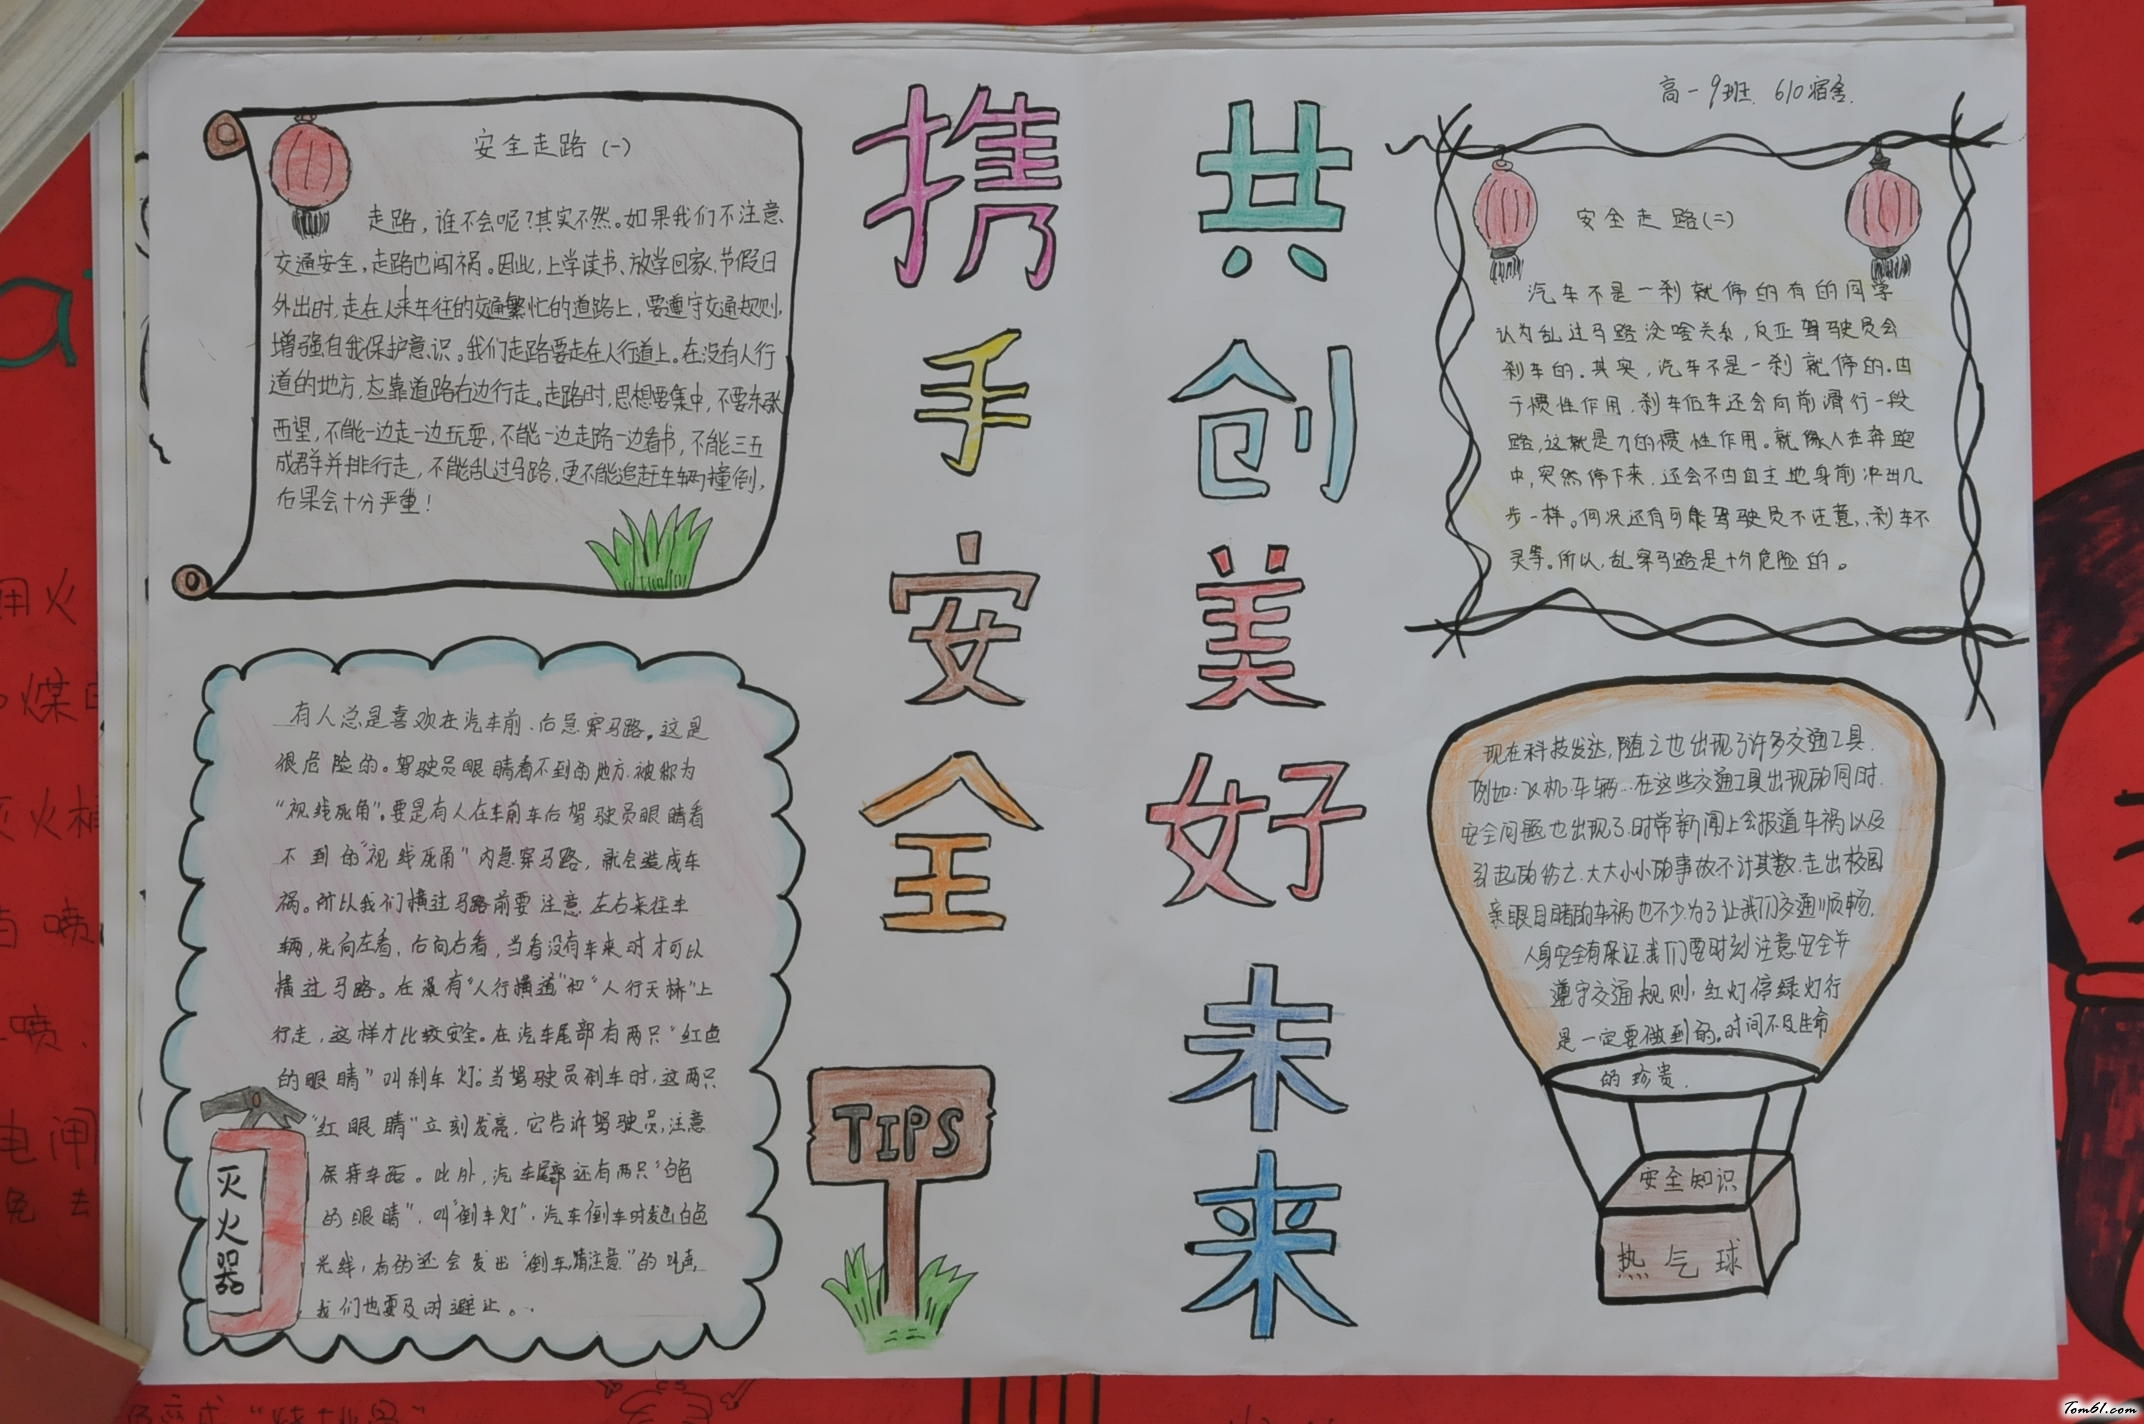 高一9班 610宿舍
携手安全
共创美好未来
安全走路(一)
走路，谁不会呢?其实不然。如果我们不注意
交通安全，走路也闯祸。因此，上学读书、放学回家、节假日
外出时，走在人来车往的交通繁忙的道路上，要遵守交通规则，
增强自我保护意识。我们走路要走在人行道上。在没有人行
道的地方，应靠道路右边行走。走路时，思想要集中，不要东张
西望，不能一边走一边玩耍，不能一边走路一边看书，不能三五
成群并排行走，不能乱过马路，更不能追赶车辆撞倒，
后果会十分严重！
有人总是喜欢在汽车前、后急穿马路。这是
很危险的。驾驶员眼睛看不到的地方.被称为
“视线死角”。要是有人在车前车后驾驶员眼睛看
不到的“视线死角”内急穿马路，就会造成车
祸。所以我们横过马路前要注意左右来往车
辆，先向左看，后向右看，当看没有车来时才可以
横过马路。在没有“人行横道”和“人行天桥”上
行走，这样才比较安全。在汽车尾部有两只“红色
的眼睛”叫刹车灯。当驾驶员刹车时，这两只
“红眼睛”立刻发亮，它告诉驾驶员，注意
保持车距。此外，汽车尾部还有两只“白色
的眼睛”，叫“倒车灯”，汽车倒车时发出白色
光线，有的还会发出“倒车，请注意”的叫声，
我们也要及时避让。
灭火器
TIPS
安全走路(二)
汽车不是一刹就停的有的同学
认为乱过马路没啥关系，反正驾驶员会
刹车的.其实，汽车不是一刹就停的.由
于惯性作用，刹车后车还会向前滑行一段
路，这就是力的惯性作用。就像人在奔跑
中，突然停下来，还会不由自主地身前冲出几
步一样。何况还有可能驾驶员不注意，刹车不
灵等。所以，乱穿马路是十分危险的。
现在科技发达，随之也出现了许多交通工具.
例如:飞机.车辆...在这些交通工具出现的同时.
安全问题也出现了.时常新闻上会报道车祸以及
引起的伤亡.大大小小的事故不计其数.走出校园
亲眼目睹的车祸也不少.为了让我们交通顺畅.
人身安全有保证.我们要时刻注意安全并
遵守交通规则，红灯停绿灯行
是一定要做到的。时间不及生命
的珍贵.
安全知识
热气球
Tom61.com